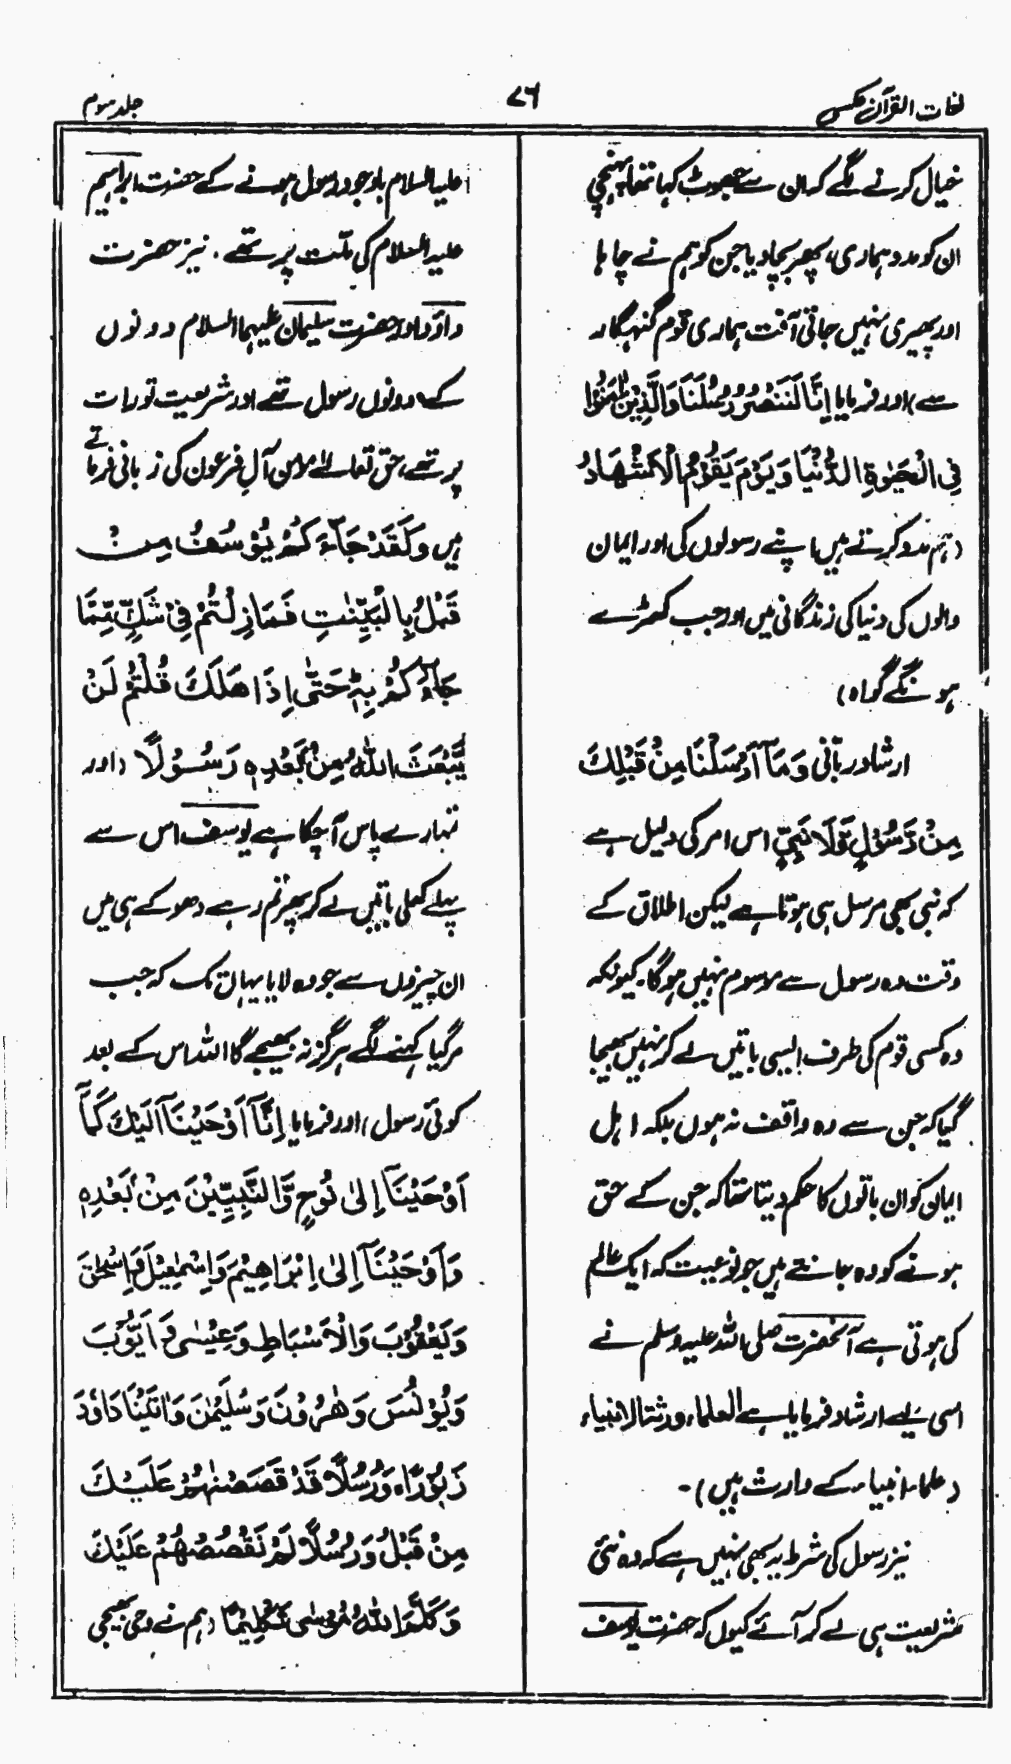 لغات القرآن عکسی
۷۶
جلد سوم
خیال کرنے لگے کہ ان سے جھوٹ کہا تھا، پہنچی
ان کو مدد ہماری، پھر بچا دیا جن کو ہم نے چاہا
اور پھیری نہیں جاتی آفت ہماری قوم گنہگار
سے) اور فرمایا اِنَّا لَنَنْصُرُ رُسُلَنَا وَالَّذِیْنَ اٰمَنُوْا
فِی الْحَیٰوةِ الدُّنْیَا وَیَوْمَ یَقُوْمُ الْاَشْهَادُ
(ہم مدد کرتے ہیں اپنے رسولوں کی اور ایمان
والوں کی دنیا کی زندگانی میں اور جب کھڑے
ہونگے گواہ)
ارشاد ربّانی وَمَآ اَرْسَلْنَا مِنْ قَبْلِكَ
مِنْ رَّسُوْلٍ وَّلَا نَبِیٍّ اس امر کی دلیل ہے
کہ نبی بھی مرسل ہی ہوتا ہے لیکن اطلاق کے
وقت وہ رسول سے موسوم نہیں ہوگا۔ کیونکہ
وہ کسی قوم کی طرف ایسی باتیں لے کر نہیں بھیجا
گیا کہ جن سے وہ واقف نہ ہوں بلکہ اہل
ایمان کو ان باتوں کا حکم دیتا تھا کہ جن کے حق
ہونے کو وہ جانتے ہیں جو نوعیت کہ ایک عالم
کی ہوتی ہے آنحضرت صلی اللہ علیہ وسلم نے
اسی لیے ارشاد فرمایا ہے العلماء ورثتہ الانبیاء
(علماء انبیاء کے وارث ہیں)۔
نیز رسول کی شرط یہ بھی نہیں ہے کہ وہ نئی
شریعت ہی لے کر آئے کیوں کہ حضرت یوسف
علیہ السلام باوجود رسول ہونے کے حضرت ابراہیم
علیہ السلام کی ملّت پر تھے۔ نیز حضرت
داؤد اور حضرت سلیمان علیہما السلام دونوں
کے دونوں رسول تھے اور شریعت تورات
پر تھے، حق تعالےٰ مومن آلِ فرعون کی زبانی فرماتے
ہیں وَلَقَدْ جَآءَكُمْ یُوْسُفُ مِنْ
قَبْلُ بِالْبَیِّنٰتِ فَمَا زِلْتُمْ فِیْ شَكٍّ مِّمَّا
جَآءَكُمْ بِهٖ حَتّٰی اِذَا هَلَكَ قُلْتُمْ لَنْ
یَّبْعَثَ اللّٰهُ مِنْۢ بَعْدِهٖ رَسُوْلًا (اور
تمہارے پاس آ چکا ہے یوسف اس سے
پہلے کھلی باتیں لے کر پھر تم رہے دھوکے ہی میں
ان چیزوں سے جو وہ لایا یہاں تک کہ جب
مر گیا کہنے لگے ہرگز نہ بھیجے گا اللہ اس کے بعد
کوئی رسول) اور فرمایا اِنَّآ اَوْحَیْنَآ اِلَیْكَ كَمَآ
اَوْحَیْنَآ اِلٰی نُوْحٍ وَّالنَّبِیِّیْنَ مِنْۢ بَعْدِهٖ
وَاَوْحَیْنَآ اِلٰی اِبْرَاهِیْمَ وَاِسْمٰعِیْلَ وَاِسْحٰقَ
وَیَعْقُوْبَ وَالْاَسْبَاطِ وَعِیْسٰی وَاَیُّوْبَ
وَیُوْنُسَ وَهٰرُوْنَ وَسُلَیْمٰنَ وَاٰتَیْنَا دَاوٗدَ
زَبُوْرًا، وَرُسُلًا قَدْ قَصَصْنٰهُمْ عَلَیْكَ
مِنْ قَبْلُ وَرُسُلًا لَّمْ نَقْصُصْهُمْ عَلَیْكَ
وَكَلَّمَ اللّٰهُ مُوْسٰی تَكْلِیْمًا (ہم نے وحی بھیجی